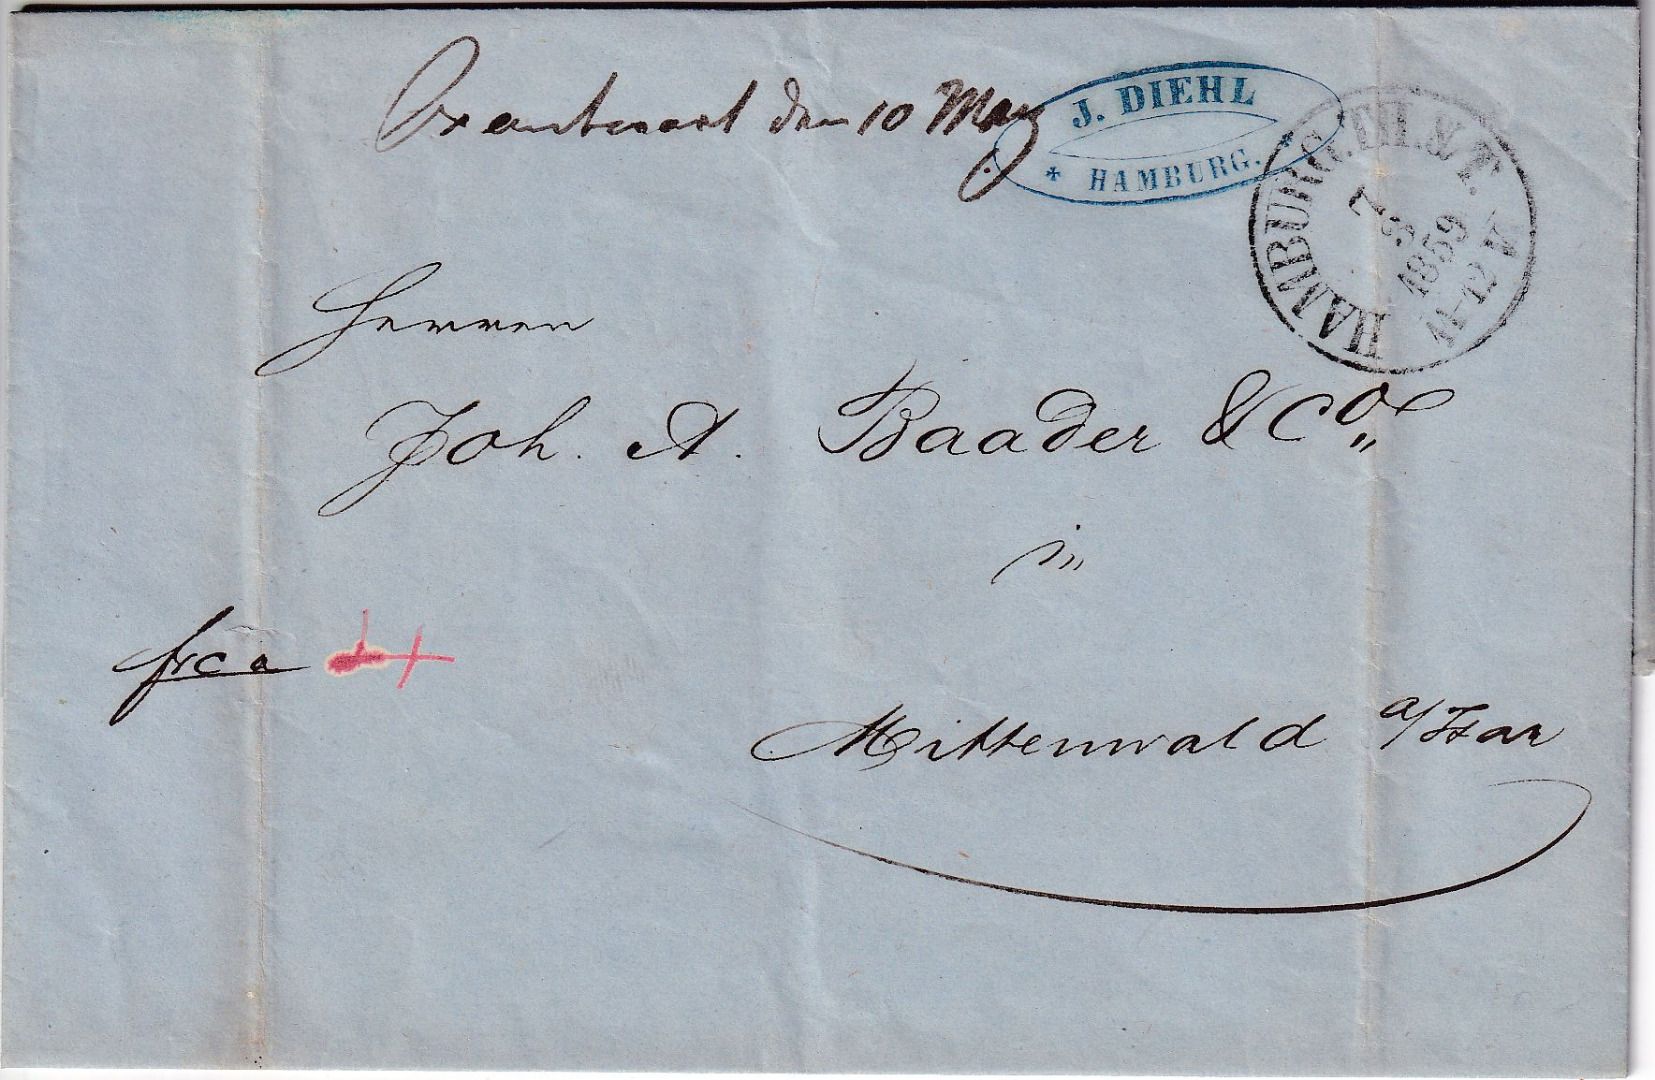 Beantwort den 10 März
J. DIEHL
* HAMBURG. *
HAMBURG. TH. & T.
7 3
1859
11-12 V.
Herren
Joh. A. Baader & Co
in
frco
Mittenwald a/Isar